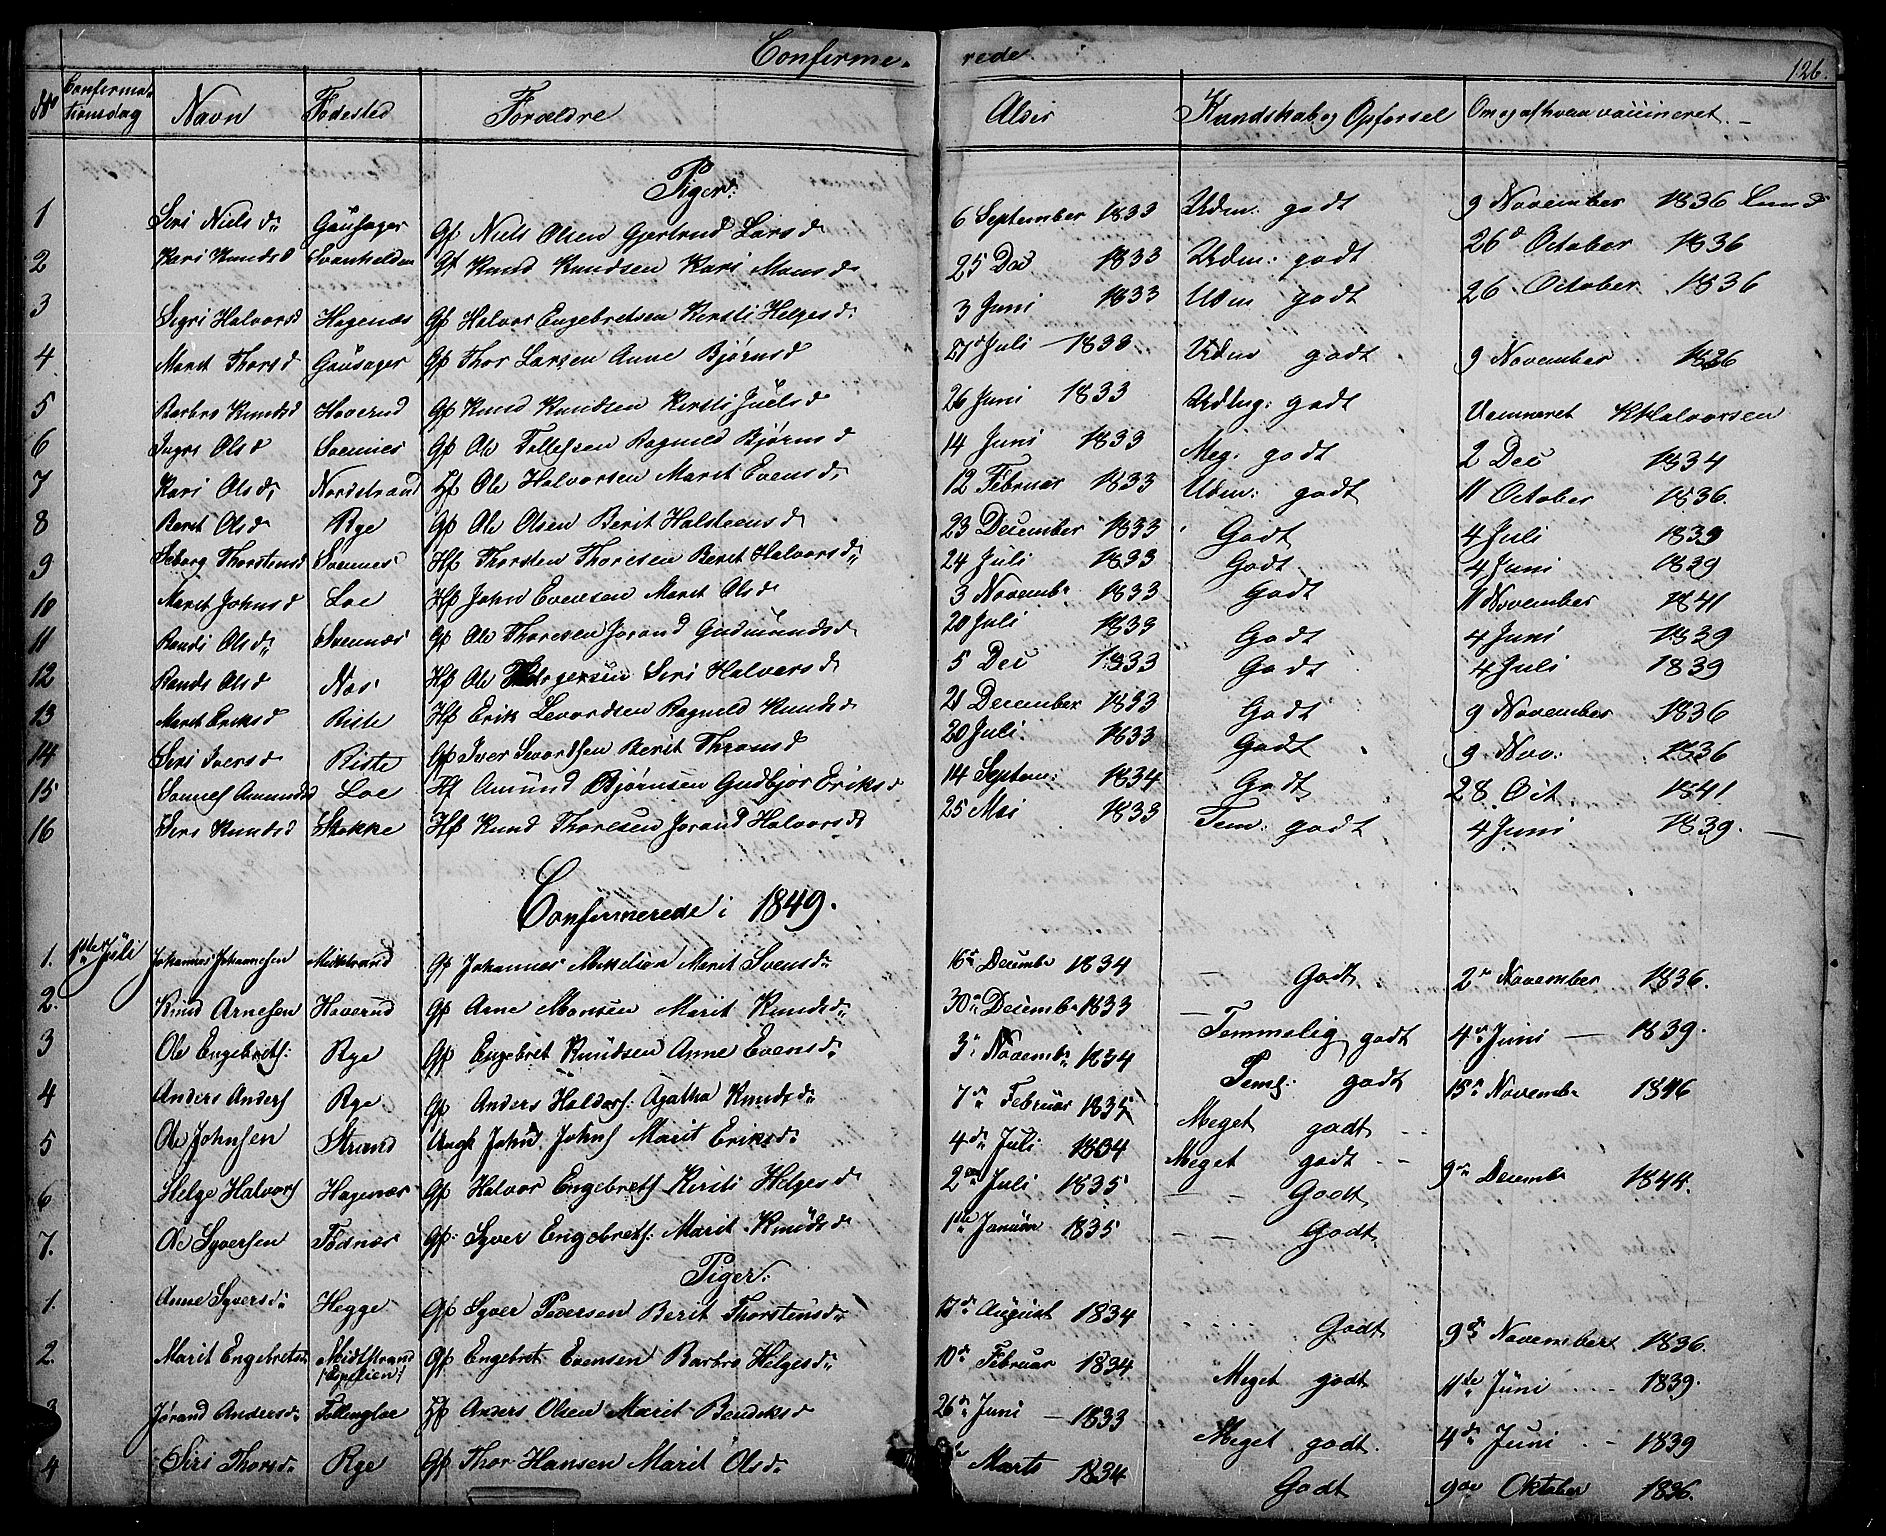 Confirme- rede.
126.
No Confirmationsdag Navn Fødested Forældre Alder Kundskab og Opførsel Om og af hvem vaccineret.
Piger.
1 Siri Nielsd. Gausager Gf Niels Olsen Gjertrud Larsd 6 September 1833 Udm: godt 9 November 1836 Lund
2 Kari Knudsd Gf Knud Knudsen Kari Monsd 25 Dec 1833 Udm: godt 26d October 1836
3 Sigri Halvorsd Hagenæs Gf Halvor Engebretsen Kersti Helgesd. 3 Juni 1833 Udm godt 26 October 1836
4 Marit Thorsd Gausager Gf Thor Larsen Anne Bjørnsd 27d Juli 1833 Udm godt 9 November 1836
5 Barbro Knudsd Haverud Gf Knud Knudsen Kersti Juelsd 26 Juni 1833 godt K Halvorsen
6 Ingri Olsd Svennes Gf Ole Tollefsen Ragnild Bjørnsd 14 Juni 1833 Meg: godt 2 Dec 1834
7 Kari Olsd. Nordstrand Hf Ole Halvorsen Marit Evensd. 12 Februar 1833 Udm: godt 11 October 1836.
8 Berit Olsd Rye Gf Ole Olsen Berit Halsteensd 23 December 1833 Godt 4 Juli 1839
9 Siborg Thorstensd Svennes Hf Thorsten Thoresen Berit Halvorsd. 24 Juli 1833 Godt 4 Juni 1839
10 Marit Johnsd Loe Hf John Evensen Marit Olsd 3 Novemb. 1833 Godt 11 November 1841
11 Randi Olsd. Svennæs Gf Ole Thoresen Jorand Gudmundsd 20 Juli 1833 Godt 4 Juni 1839
12 Randi Olsd Nøs Hf Ole Siri Halvorsd 5 Dec 1833 Godt 4 Juli 1839
13 Marit Eriksd Riste Hf Erik Sevordsen Ragnild Knudsd 21 December 1833 Godt 9 November 1836
14 Siri Iversd Riste Gf Iver Sevordsen Berit Thronsd 20 Juli 1833 Godt 9 Nov: 1836
15 Amundsd Loe Hf Amund Bjørnsen Gudbjør Eriksd 14 Septem: 1834 Godt 28 Oct 1841
16 Siri Knudsd Stokke Hf Knud Thoresen Jorand Halvorsd 25 Mai 1833 Tem: godt 4 Juni 1839.
Confirmerede i 1849.
1. 1ste Juli Johannes Johannesen Midtstrand Gf Johannes Mikelsen Marit Svensd. 16de Decembr 1834 Godt 2den November 1836.
2. Knud Arnesen Haverud Gf Arne Monsen Marit Knudsd. 30te Decembr 1833 Temmelig godt 4de Juni 1839.
3 Ole Engebrets: Rye Gf Engebret Knudsen Anne Evensd. 3die Novembr 1834 Teml: godt 15de Novembr 1846
4 Anders Anders Rye Gf Anders Haldors: Agatha Knudsd. 7de Februar 1835 Meget godt
5 Ole Johnsen Strand Ungk John Johns Marit Eriksd. 4de Juli 1834 Meget godt 9de Decembr 1844.
6 Helge Halvors Hagenæs Gf Halvor Engebrets Kirsti Helgesd 2den Juli 1835 Godt
7. Ole Syversen Fødnæs Gf: Syver Engebrets: Marit Knudsd 1ste Januar 1835 Godt.
Piger.
1. Anne Syversd. Hegge Gf Syver Pedersen Berit Thorstensd. 17de August 1834 Godt 9de November 1836.
2. Marit Engebretsd Midtstrand Gf Engebret Evensen Barbro Helgesd. 10de Februar 1834 Meget godt 11te Juni 1839.
3 Jørand Andersd. Follingloe Hf Anders Olsen Marit Bendiksd 26de Juni 1833 Meget godt. 4de Juni 1839
4 Siri Thorsd. Rye Gf Thor Hansen Marit Olsd. Marts 1834 Godt 9de Oktober 1836.